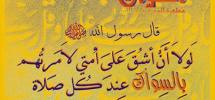 قال رسول الله ﷺ
لولا أن أشق على أمتي لأمرتهم
بالسواك عند كل صلاة